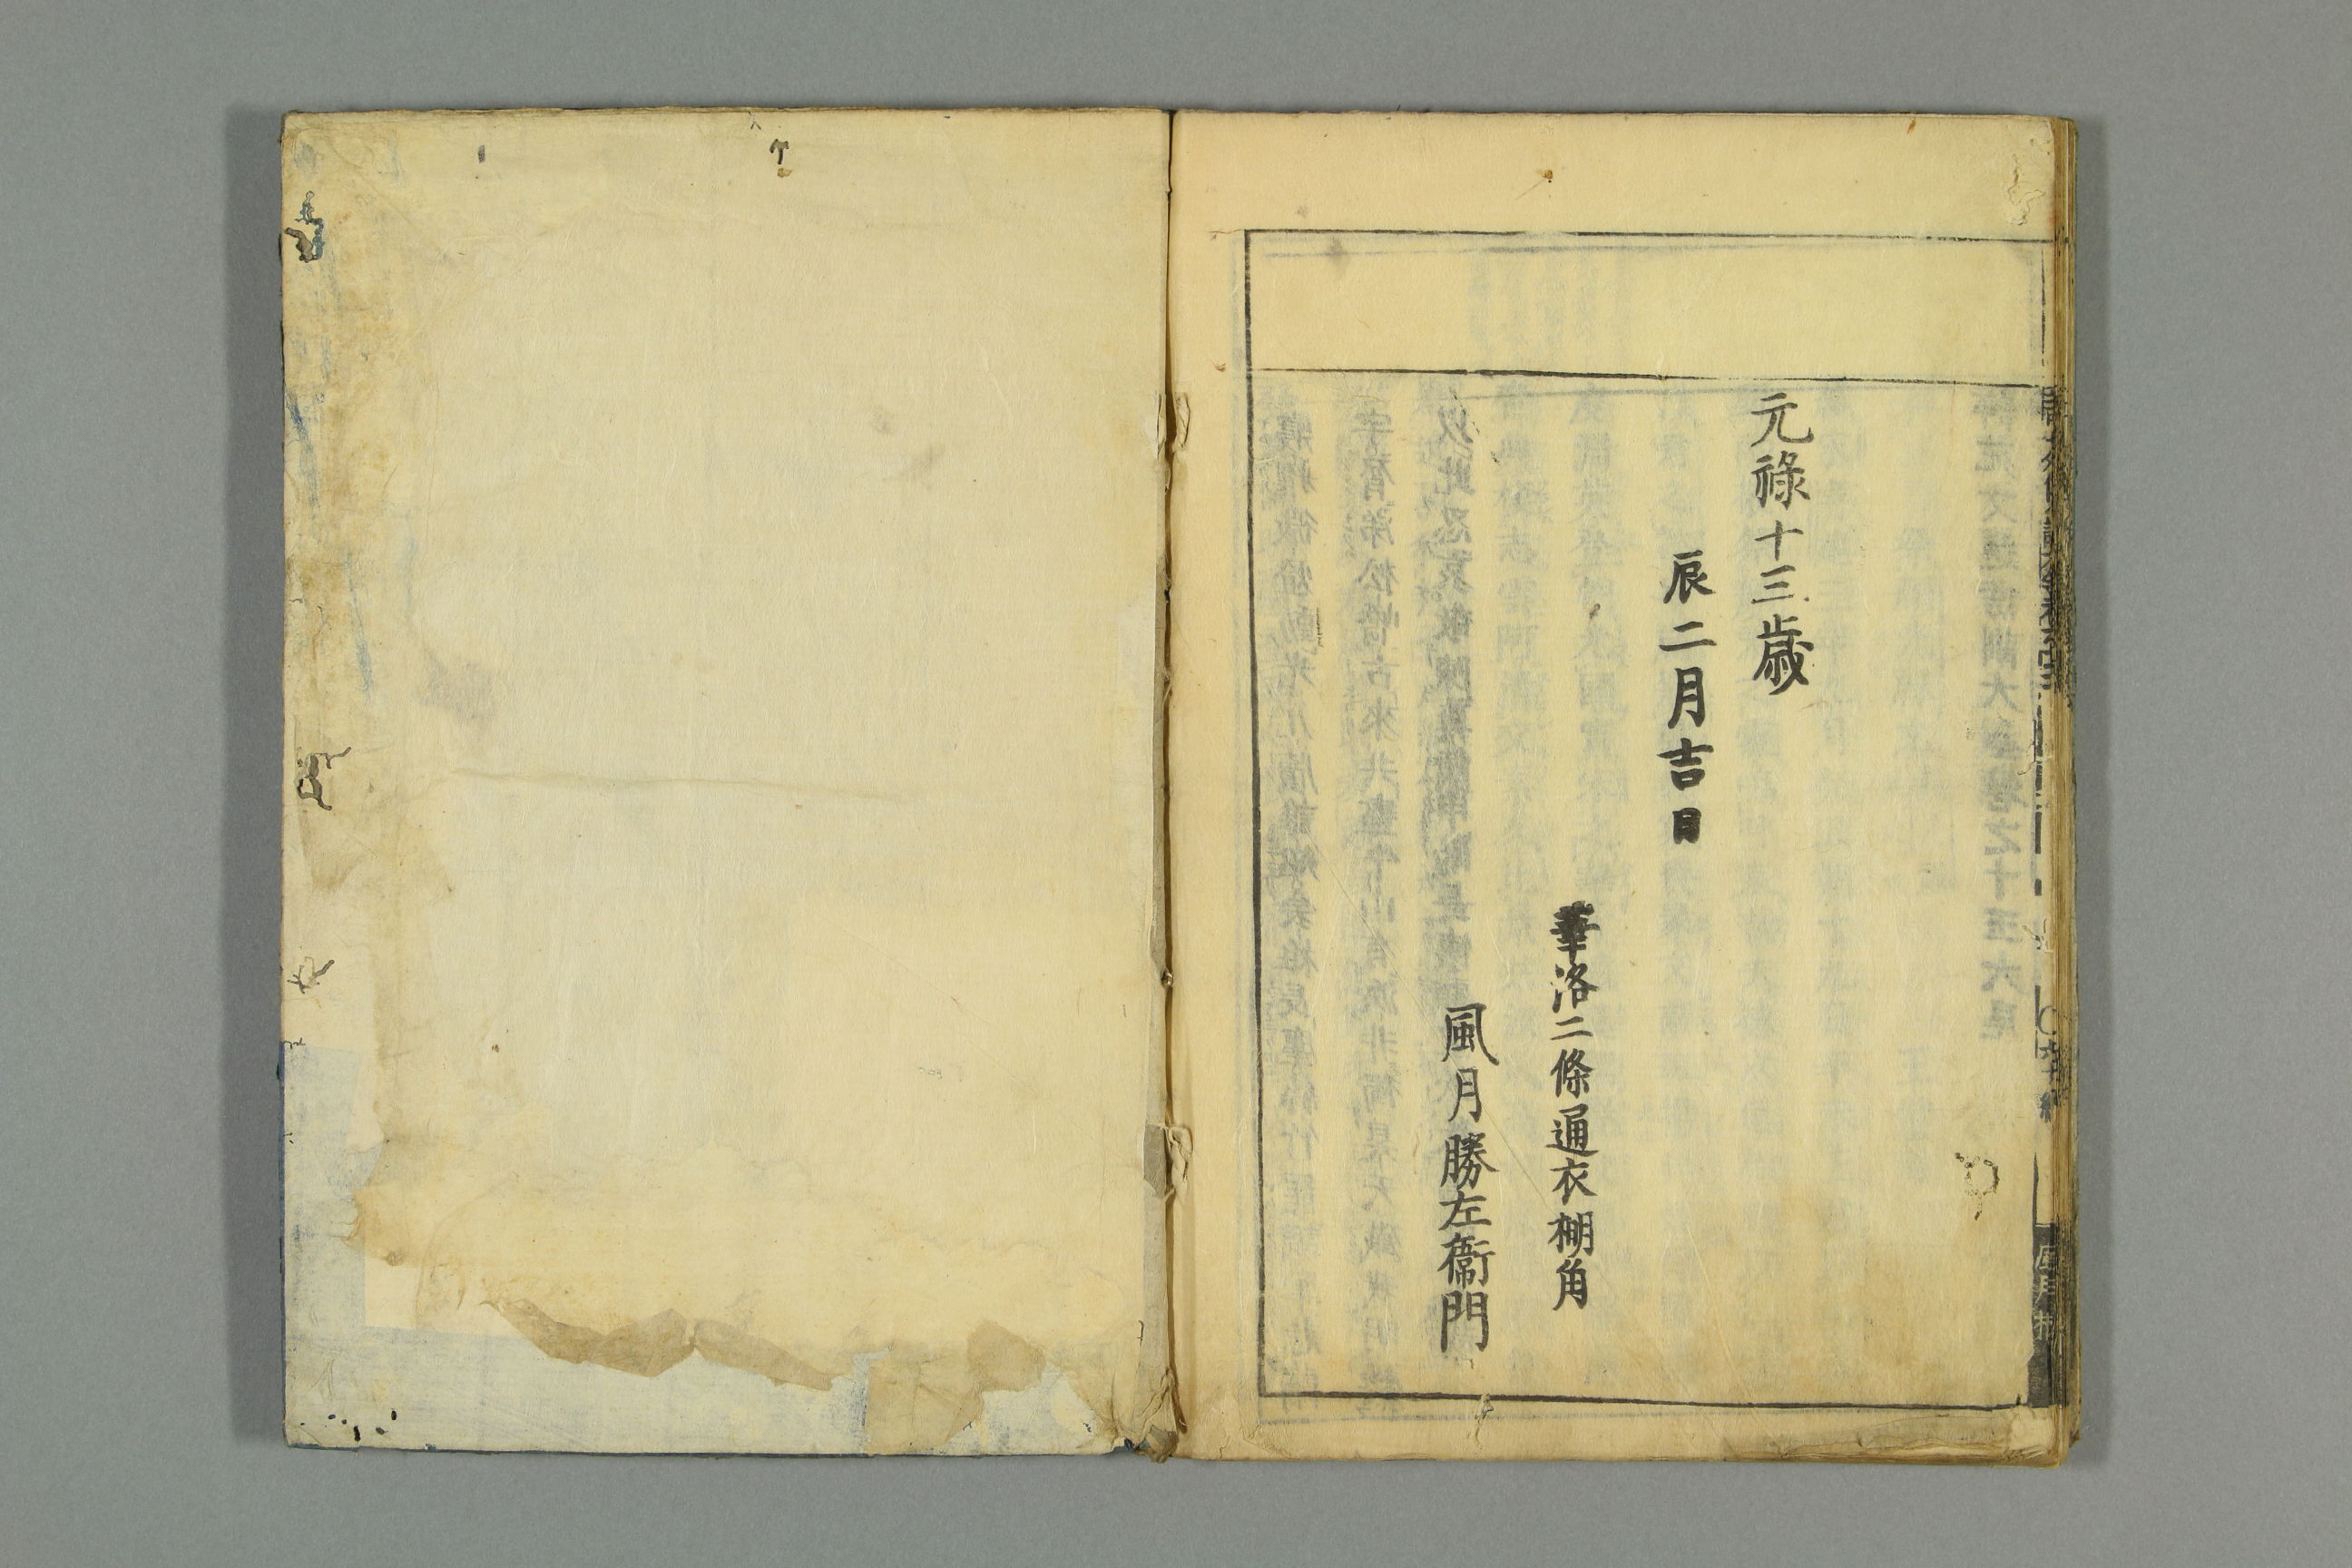 元禄十三歳
辰二月吉日
華洛二條通衣棚角
風月勝左衞門